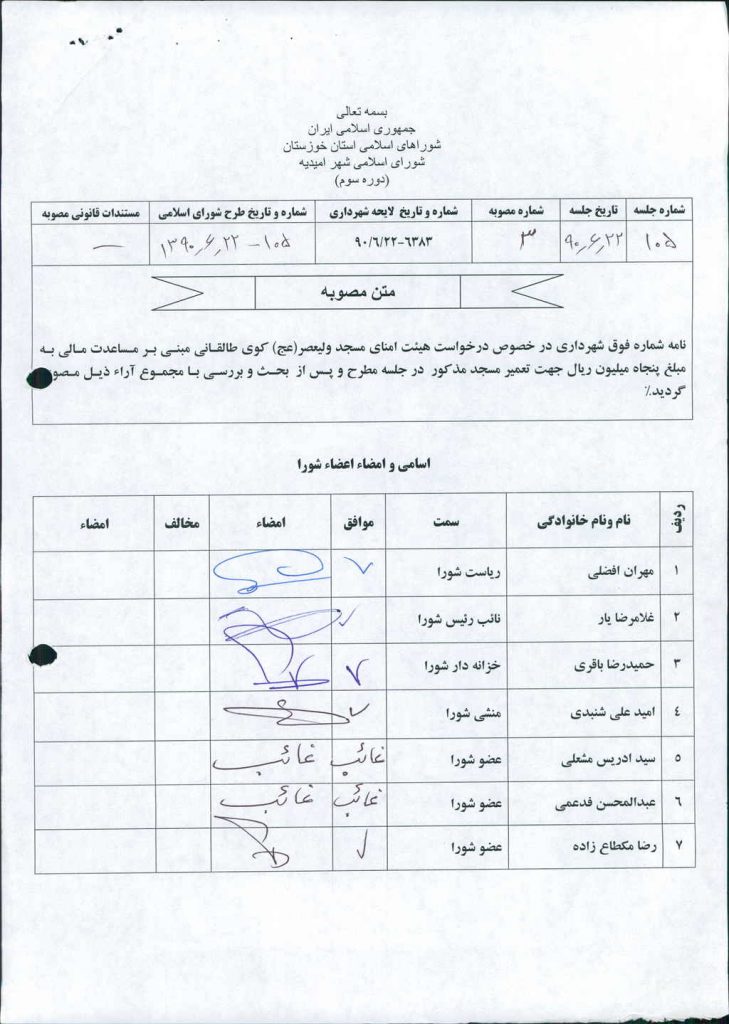 بسمه تعالی
جمهوری اسلامی ایران
شوراهای اسلامی استان خوزستان
شورای اسلامی شهر امیدیه
(دوره سوم)
شماره جلسه تاریخ جلسه شماره مصوبه شماره و تاریخ لایحه شهرداری شماره و تاریخ طرح شورای اسلامی مستندات قانونی مصوبه
۱۰۵ ۹۰٫۶٫۲۲ ۳ ۶۳۸۳-۹۰/۶/۲۲ ۱۰۵ – ۱۳۹۰٫۶٫۲۲ —
متن مصوبه
نامه شماره فوق شهرداری در خصوص درخواست هیئت امنای مسجد ولیعصر(عج) کوی طالقانی مبنی بر مساعدت مالی به
مبلغ پنجاه میلیون ریال جهت تعمیر مسجد مذکور در جلسه مطرح و پس از بحث و بررسی با مجموع آراء ذیل مصو
گردید.٪
اسامی و امضاء اعضاء شورا
ردیف نام ونام خانوادگی سمت موافق امضاء مخالف امضاء
۱ مهران افضلی ریاست شورا
۲ غلامرضا یار نائب رئیس شورا
۳ حمیدرضا باقری خزانه دار شورا
٤ امید علی شنبدی منشی شورا
۵ سید ادریس مشعلی عضو شورا غائب غائب
۶ عبدالمحسن فدعمی عضو شورا غائب غائب
۷ رضا مکطاع زاده عضو شورا